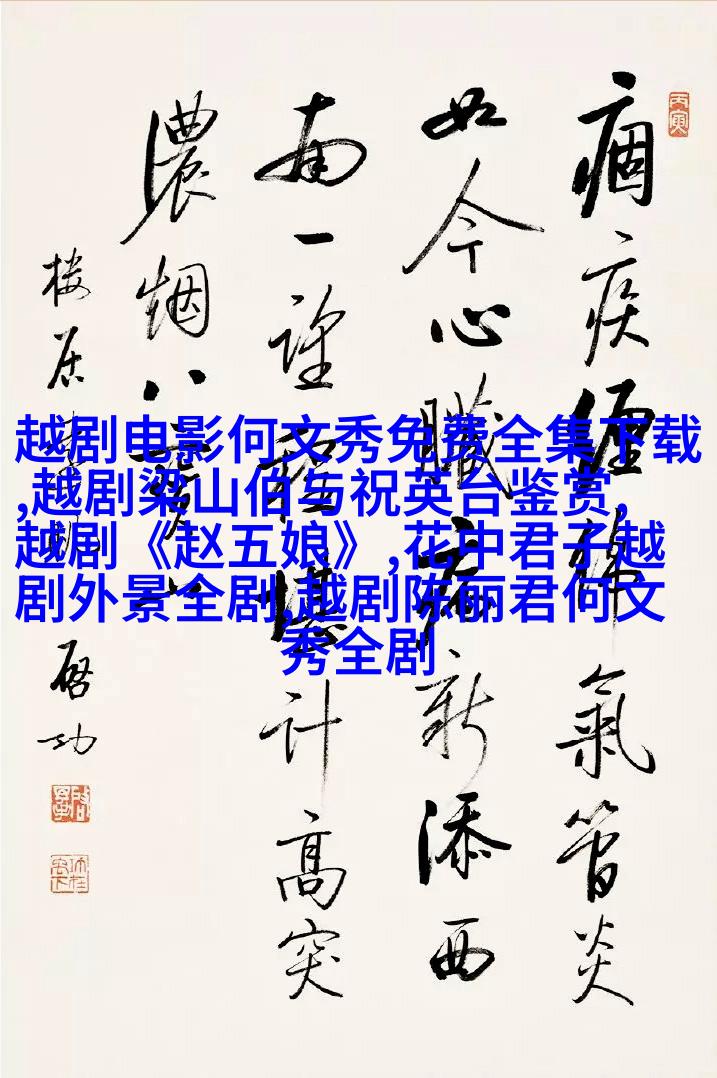 越剧电影何文秀免费全集下载
,越剧梁山伯与祝英台鉴赏,
越剧《赵五娘》,花中君子越
剧外景全剧,越剧陈丽君何文
秀全剧
丙寅
痼疾纏綿氣管炎
如今心臟病新添西
南一望計高突
濃烟八
楼居
启功